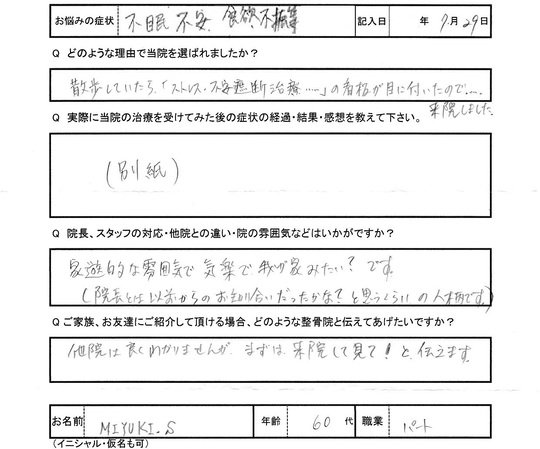 お悩みの症状 不眠 不安、食欲不振等 記入日 年 7月29日
Q どのような理由で当院を選ばれましたか？
散歩していたら、「ストレス・不安遮断治療……」の看板が目に付いたので….
来院しました
Q 実際に当院の治療を受けてみた後の症状の経過・結果・感想を教えて下さい。
(別紙)
Q 院長、スタッフの対応・他院との違い・院の雰囲気などはいかがですか？
家庭的な雰囲気で 気楽で 我が家みたい? です
(院長とは以前からのお知り合いだったかな? と思うくらいの人柄です。)
Q ご家族、お友達にご紹介して頂ける場合、どのような整骨院と伝えてあげたいですか？
他院は良く分かりませんが、まずは来院して見て! と、伝えます。
お名前 MIYUKI.S 年齢 60代 職業 パート
(イニシャル・仮名も可)